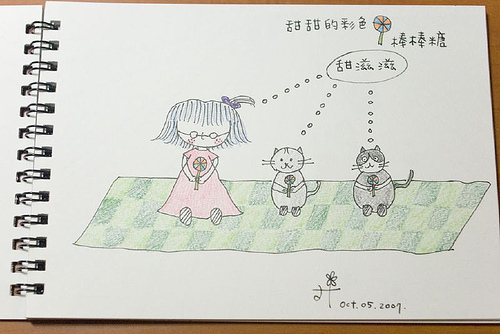 甜甜的彩色
棒棒糖
甜滋滋
oct.05.2009.